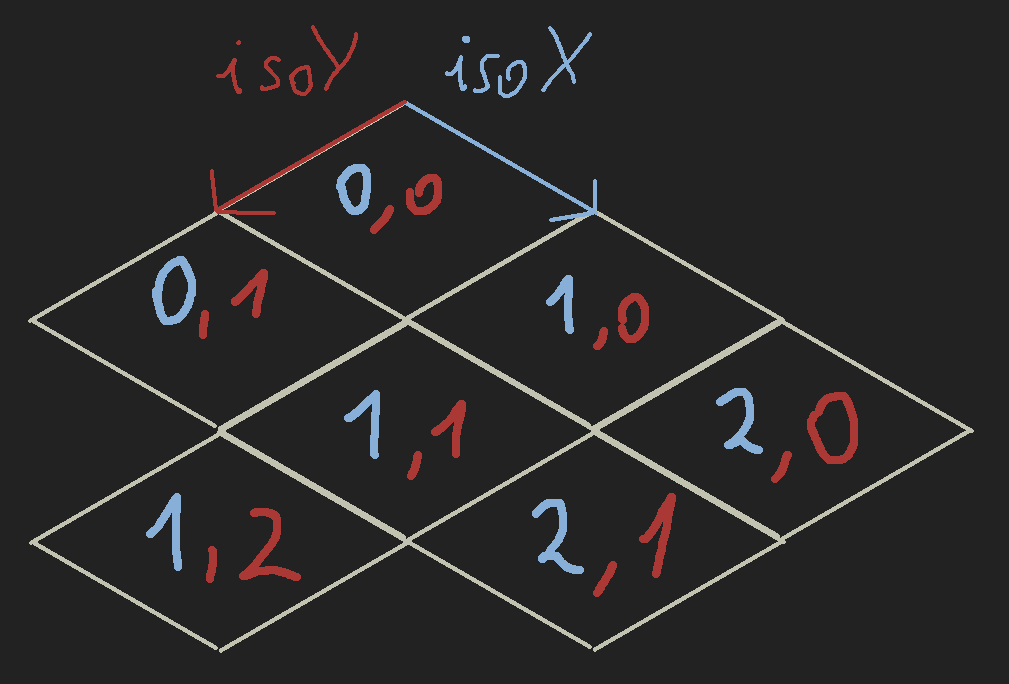 isoY isoX
0,0
0,1 1,0
1,1 2,0
1,2 2,1